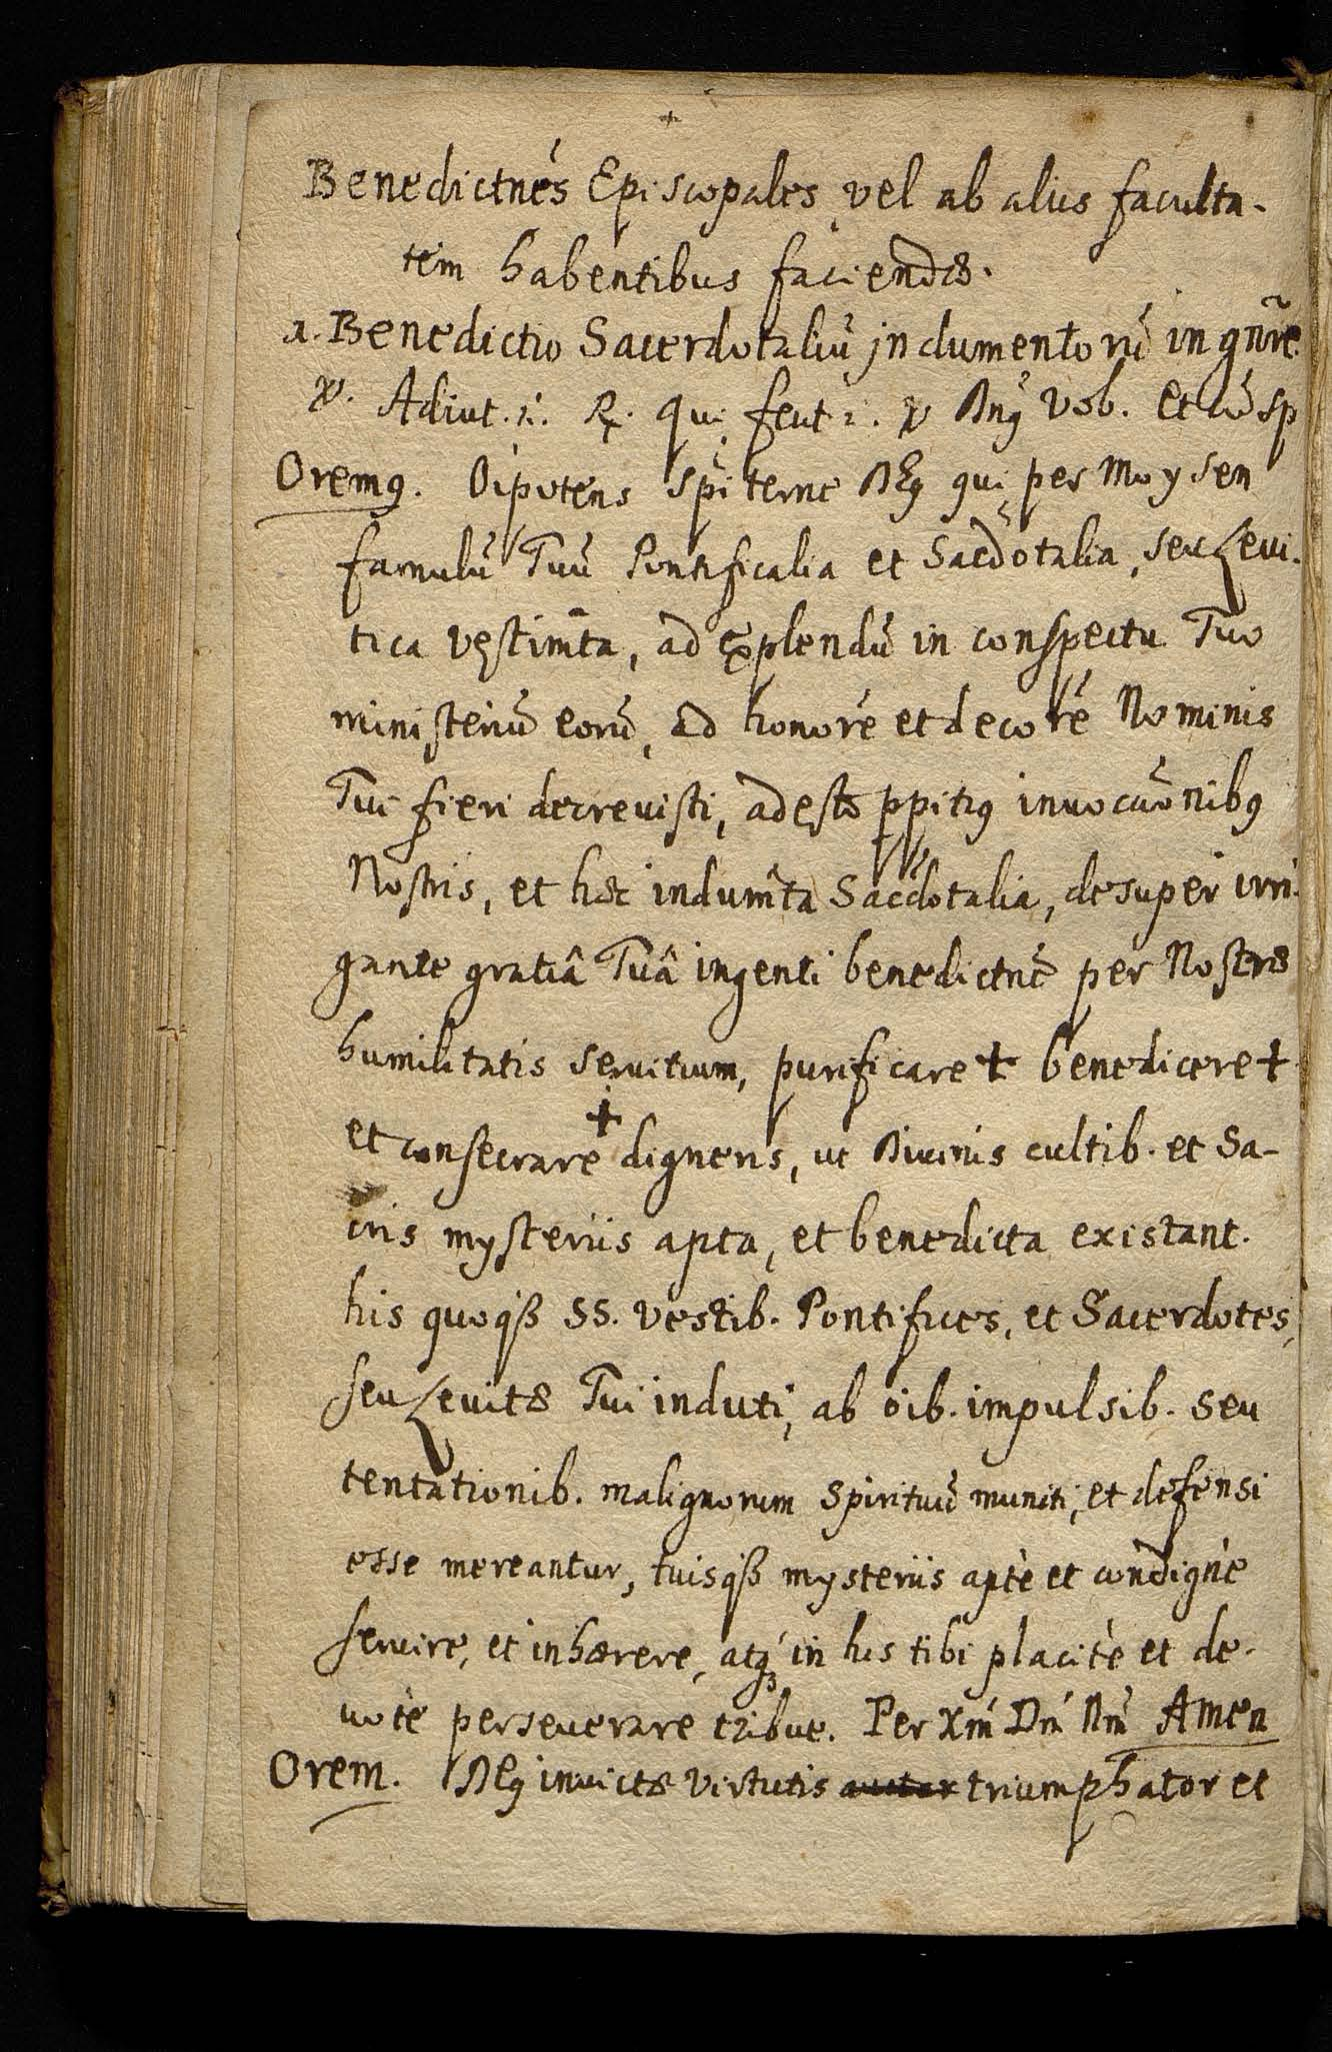 Benedictnẽs Episcopales vel ab aliis faculta-
tem habentibus faciendæ.
1. Benedictio Sacerdotaliũ jndumentorũ in gñre.
℣. Adiut. ℟. Qui fecit. ℣ Dnꝰ vob. Et cũ sp
Oremꝰ. Oĩpotens sp̃iterne Deꝰ qui per Moysen
famulũ Tuũ Pontificalia et Sac̃dotalia, seu Leui-
tica vestim̃ta, ad explendũ in conspectu Tuo
ministeriũ eorũ, ad honorẽ et decorẽ Nominis
Tui fieri decreuisti, adesto ꝓpitiꝰ inuoca͠onibꝰ
Nostris, et hæc indum̃ta Sac̃dotalia, desuper irri-
gante gratiâ Tuâ ingenti benedictnẽ per Nostræ
humilitatis seruitium, purificare ✝ benedicere ✝
et consecrare ✝ digneris, ut Diuinis cultib. et Sa-
cris mysteriis apta, et benedicta existant.
his quoqß SS. vestib. Pontifices, et Sacerdotes,
seu Leuitæ Tui induti, ab õib. impulsib. seu
tentationib. malignorum spirituũ muniti, et defensi
esse mereantur, tuisqß mysteriis aptè et condignè
seruire, et inhærere, atqꝫ in his tibi placitè et de-
uotè perseuerare tribue. Per Xm̃ Dm̃ Nm̃ Amen
Orem. Deꝰ inuictæ virtutis auctor triumphator et